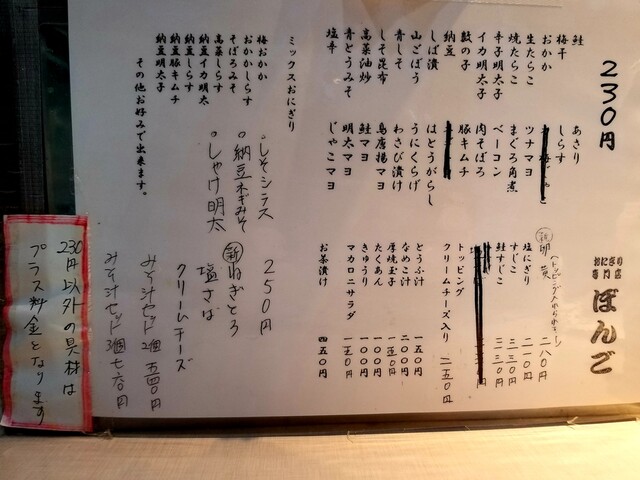 おにぎり
専門店
ぼんご
230円
鮭
梅干
おかか
生たらこ
焼たらこ
辛子明太子
イカ明太子
数の子
納豆
しば漬
山ごぼう
青しそ
しそ昆布
高菜油炒
青とうみそ
塩辛
あさり
しらす
ツナマヨ
まぐろ角煮
ベーコン
肉そぼろ
豚キムチ
はとうがらし
うにくらげ
わさび漬け
鳥唐揚マヨ
鮭マヨ
明太マヨ
じゃこマヨ
卵黄 二八〇円
塩にぎり 二一〇円
すじこ 三三〇円
鮭すじこ
トッピング
クリームチーズ入り 二五〇円
とうふ汁 一五〇円
なめこ汁 二〇〇円
厚焼玉子 一五〇円
たくあん 一〇〇円
きゅうり 一〇〇円
マカロニサラダ 一五〇円
お茶漬け 四五〇円
ミックスおにぎり
梅おかか
おかかしらす
そぼろみそ
高菜しらす
納豆イカ明太
納豆しらす
納豆豚キムチ
納豆明太子
その他お好みで出来ます。
。しそシラス
。納豆ネギみそ
。しゃけ明太
250円
新 ねぎとろ
塩さば
クリームチーズ
みそ汁セット 2個 五四〇円
みそ汁セット 3個 七六〇円
230円以外の具材は
プラス料金となります